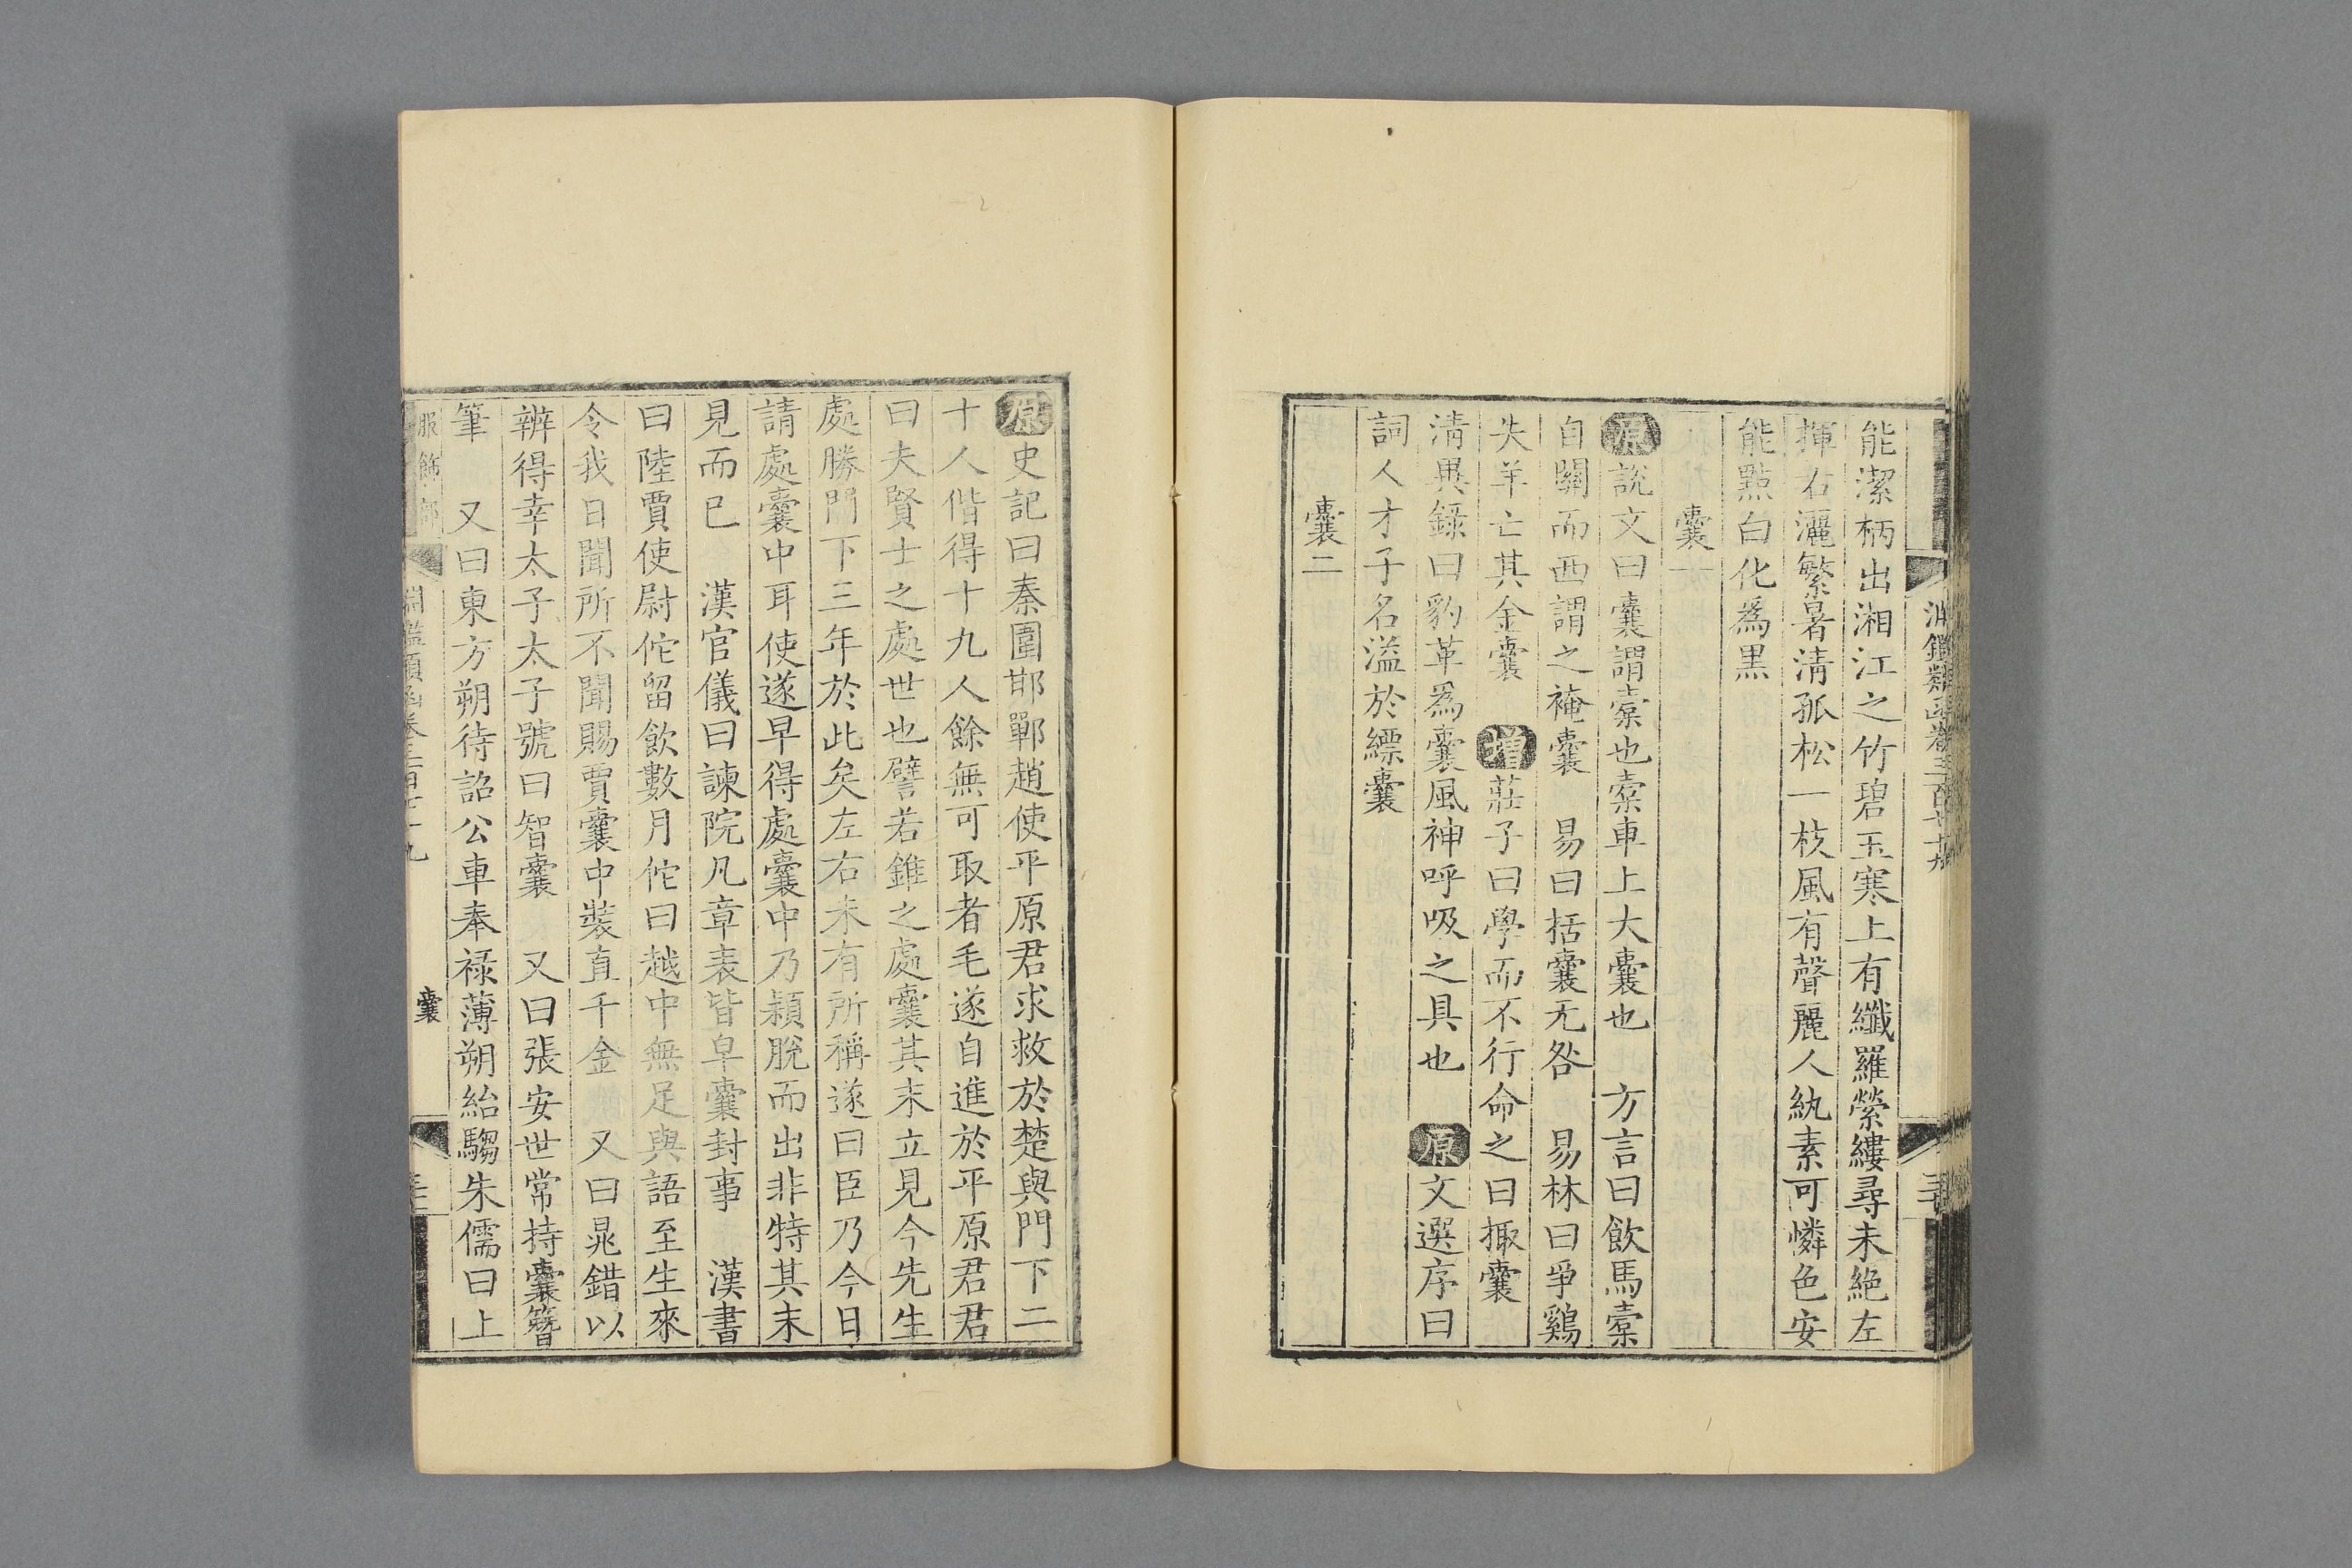 能潔柄出湘江之竹碧玉寒上有纖羅縈縷尋未絕左
揮右灑繁暑清孤松一枝風有聲麗人紈素可憐色安
能點白化爲黑
囊一
原說文曰囊謂橐也橐車上大囊也　方言曰飲馬橐
自關而西謂之裺囊　易曰括囊无咎　易林曰爭鷄
失羊亡其金囊　增莊子曰學而不行命之曰掫囊
清異錄曰豹革爲囊風神呼吸之具也　原文選序曰
詞人才子名溢於縹囊
囊二
原史記曰秦圍邯鄲趙使平原君求救於楚與門下二
十人偕得十九人餘無可取者毛遂自進於平原君君
曰夫賢士之處世也譬若錐之處囊其末立見今先生
處勝門下三年於此矣左右未有所稱遂曰臣乃今日
請處囊中耳使遂早得處囊中乃穎脫而出非特其末
見而已　漢官儀曰諫院凡章表皆皁囊封事　漢書
曰陸賈使尉佗留飲數月佗曰越中無足與語至生來
令我日聞所不聞賜賈囊中裝直千金　又曰晁錯以
辨得幸太子太子號曰智囊　又曰張安世常持囊簪
筆　又曰東方朔待詔公車奉祿薄朔紿騶朱儒曰上
服飾部　淵鑑類函卷三百七十九　囊